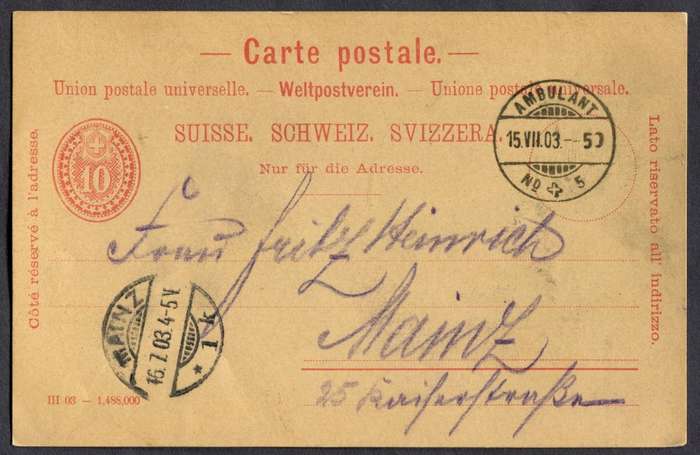 — Carte postale. —
Union postale universelle. — Weltpostverein. — Unione postale universale.
SUISSE. SCHWEIZ. SVIZZERA.
Nur für die Adresse.
Côté réservé à l'adresse.
10
Lato riservato all' indirizzo.
AMBULANT
15.VII.03.–5
No 5
Frau Fritz Heinrich
Mainz
25 Kaiserstraße
MAINZ
16.7.03.4-5V.
* 1 k
III 03 — 1,488,000